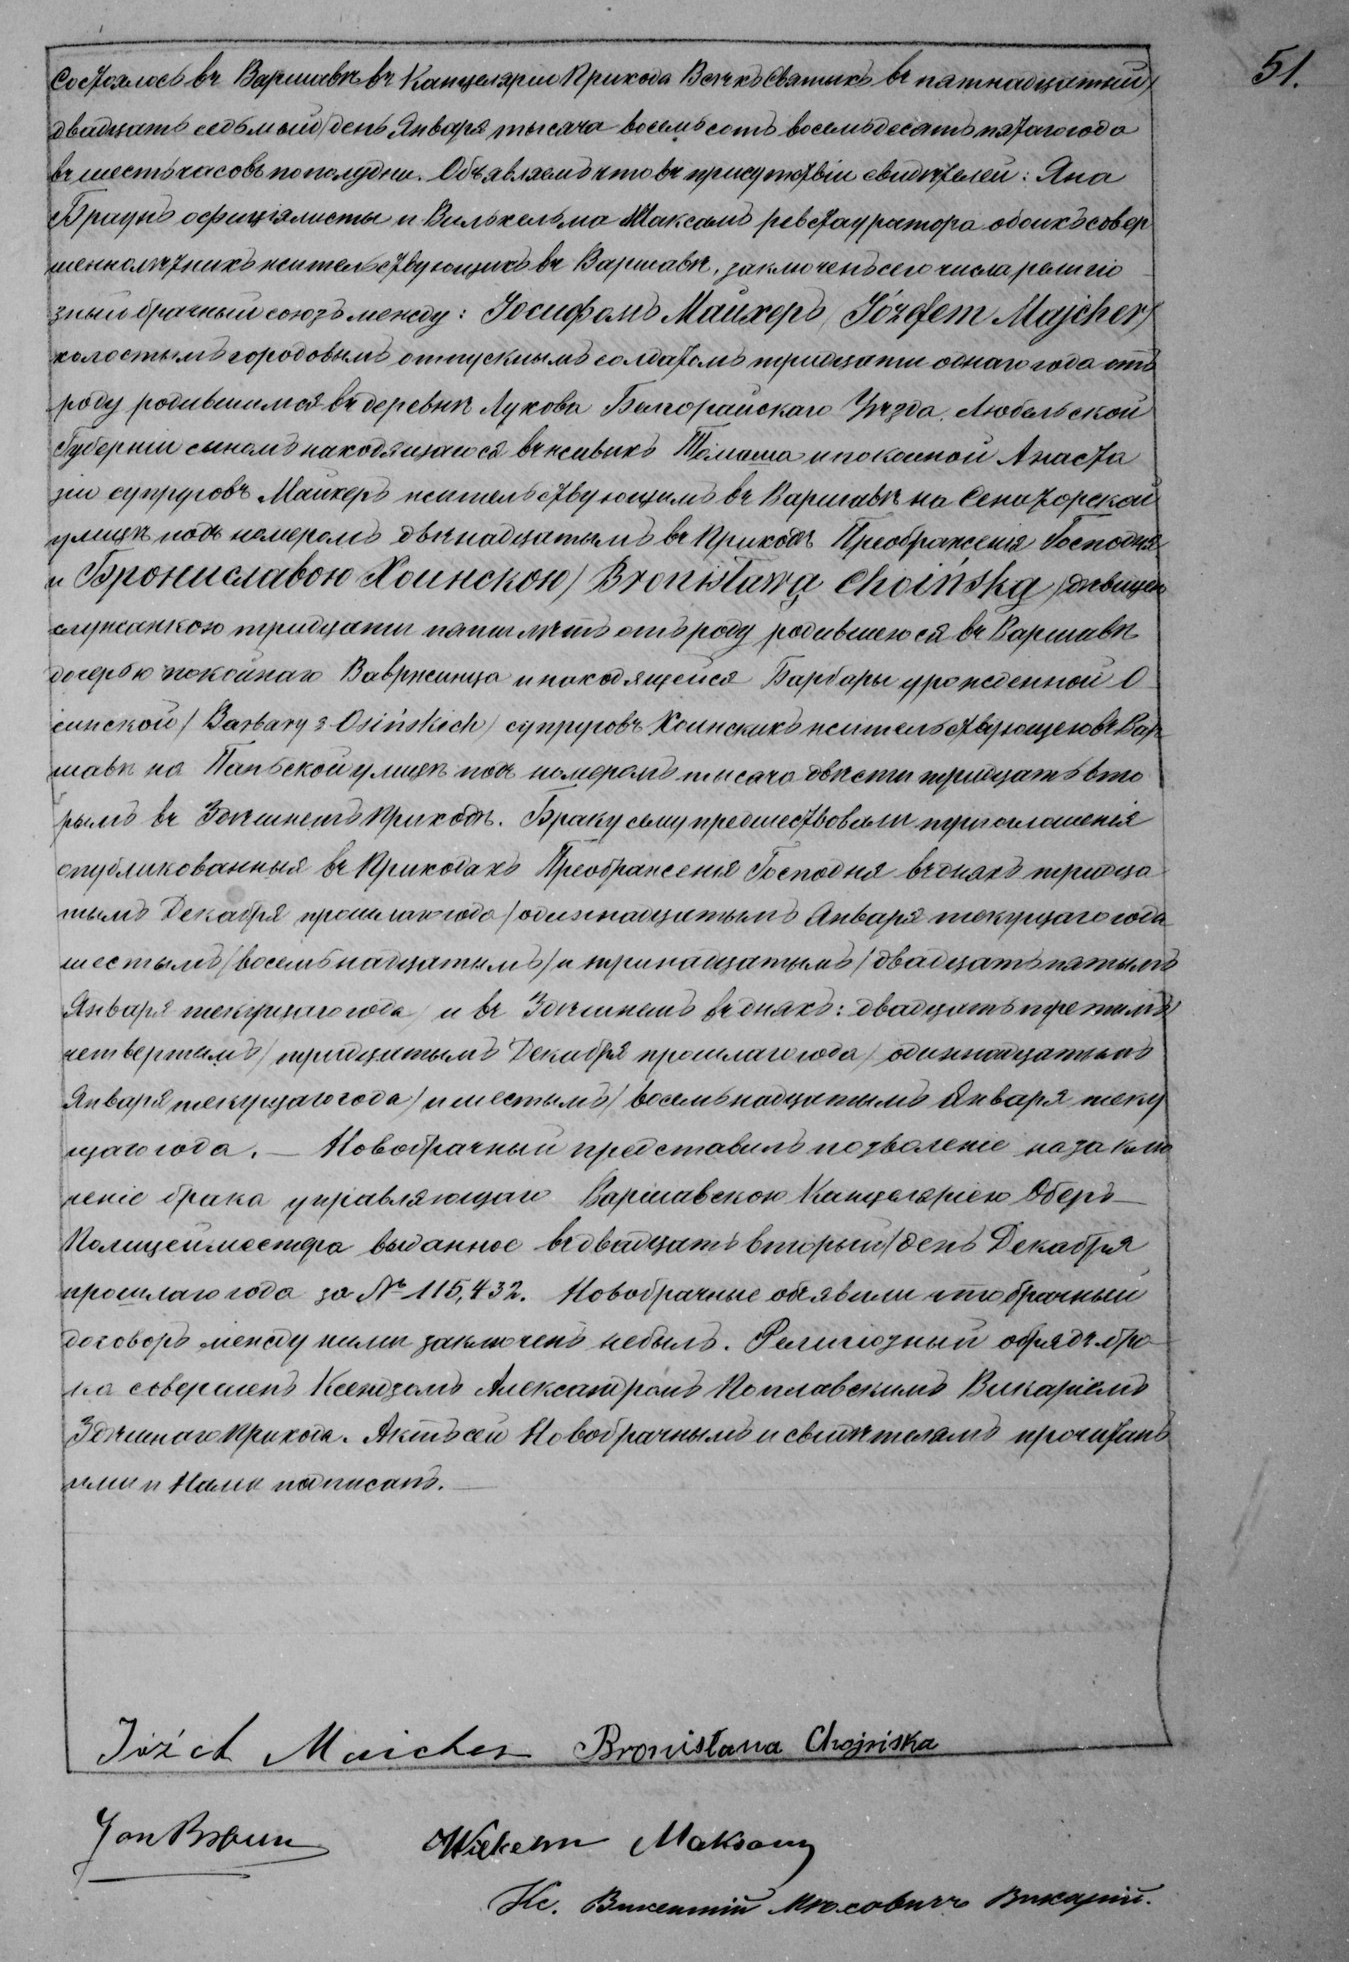 51.
Состоялось въ Варшавѣ въ Канцеляріи Прихода Всѣхъ Святыхъ въ пятнадцатый/
двадцать седьмый/день Января тысяча восемьсотъ восемьдесятъ пятаго года
въ шесть часовъ по полудни. Объявляемъ что въ присутствіи свидѣтелей: Яна
Браунъ оффиціялисты и Вильхельма Максамъ реставратора обоихъ совер
шеннолѣтнихъ жительствующихъ въ Варшавѣ, заключенъ сего числа религіо
зный брачный союзъ между: Іосифомъ Майхеръ/Józefem Majcher/
холостымъ городовымъ отпускнымъ солдатомъ тридцати однаго года отъ
роду родившимся въ деревнѣ Лукова Белгорайскаго Уѣзда Любельской
Губерніи сыномъ находящагося въ живыхъ Томаша и покойной Анаста
зіи супруговъ Майхеръ жительствующимъ въ Варшавѣ на Сенаторской
улицѣ подъ номеромъ двѣнадцатымъ въ Приходѣ Преображенія Господня
и Брониславою Хоинскою/Bronisławą Choińską/дѣвицею
служанкою тридцати пяти лѣтъ отъ роду родившеюся въ Варшавѣ
дочерью покойнаго Вавржинца и находящейся Барбары урожденной О
синской/Barbary z Osińskich/супруговъ Хоинскихъ жительствующею въ Вар
шавѣ на Паньской улицѣ подъ номеромъ тысяча двѣсти тридцать вто
рымъ въ Здѣшнемъ Приходѣ. Браку сему предшествовали приглашенія
опубликованныя въ Приходахъ Преображенія Господня въ дняхъ тридца
тымъ Декабря прошлаго года/одиннадцатымъ Января текущаго года
шестымъ/восемьнадцатымъ/и тринадцатымъ/двадцать пятымъ
Января текущаго года/и въ Здѣшнемъ въ дняхъ: двадцать
четвертымъ/тридцатымъ Декабря прошлаго года/одиннадцатымъ
Января текущаго года/и шестымъ/восемьнадцатымъ Января теку
щаго года. — Новобрачный представилъ позволеніе на заклю
ченіе брака управляющаго Варшавскою Канцеляріею Оберъ-
Полицеймейстера выданное въ двадцать вторый/день Декабря
прошлаго года за № 115,432. Новобрачные объявили что брачный
договоръ между ними заключенъ небылъ. Религіозный обрядъ бра
ка совершенъ Ксендзомъ Александромъ Поплавскимъ Викаріемъ
Здѣшнаго Прихода. Актъ сей Новобрачнымъ и свидѣтелямъ прочитанъ
ими и Нами подписанъ. —
Józef Maicher Bronisława Chojńska
Jan Braun Wilhelm Maksam
Кс. Викентій Викарій.